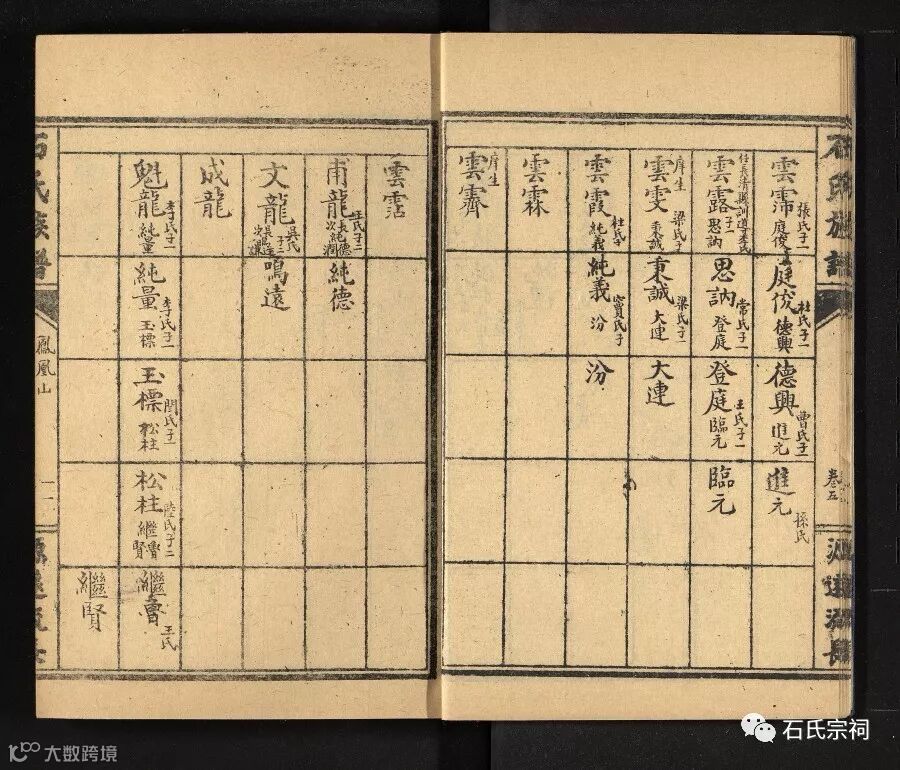 石氏族譜
卷五
源遠流長
雲霈 張氏子一 庭俊
庭俊 杜氏子一 德興
德興 曹氏子一 進元
進元 孫氏
雲露 任長清縣訓導李氏子一 思訥
思訥 常氏子一 登庭
登庭 王氏子一 臨元
臨元
雲雯 庠生 梁氏子一 秉誠
秉誠 梁氏子一 大連
大連
雲霞 杜氏子 純義
純義 竇氏子 汾
汾
雲霖
雲霽 庠生
雲霑
甫龍 純德 次純潤
純德
文龍 吳氏子二 鳴遠
鳴遠
成龍
魁龍 李氏子一 純量
純量 李氏子一 玉標
玉標 閆氏子一 松柱
松柱 陸氏子二 繼魯 賢
繼魯 王氏
繼賢
石氏族譜
鳳凰山
石氏宗祠
大数跨境